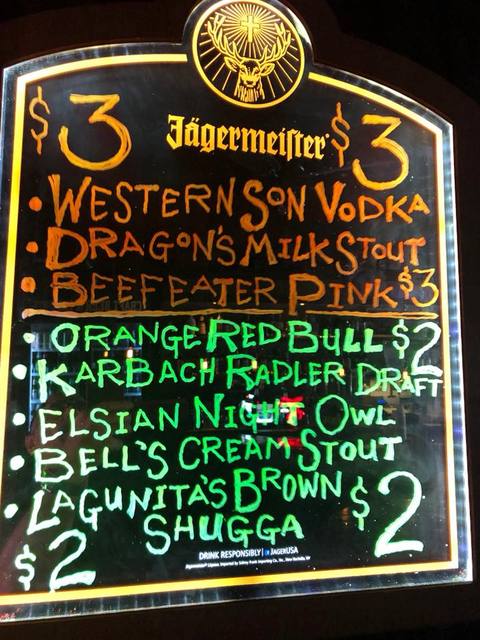 $3 Jägermeister $3
• WESTERN SON VODKA
• DRAGON'S MILK STOUT
• BEEFEATER PINK $3
• ORANGE RED BULL $2
• KARBACH RADLER DRAFT
• ELSIAN NIGHT OWL
• BELL'S CREAM STOUT
• LAGUNITA'S BROWN
SHUGGA
$2 $2
DRINK RESPONSIBLY | JÄGERUSA